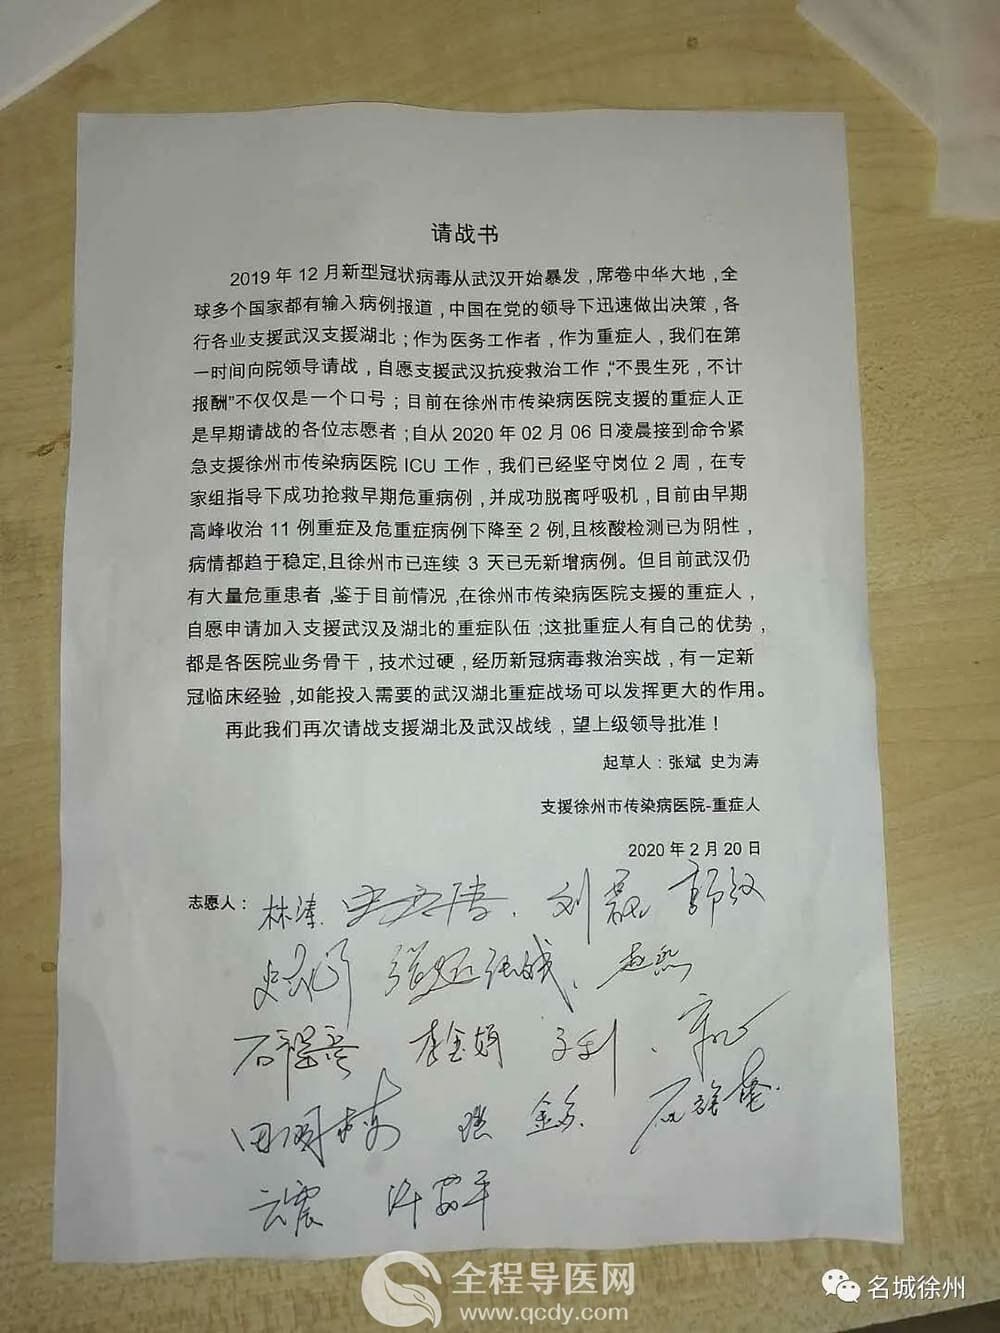 请战书
2019年12月新型冠状病毒从武汉开始暴发，席卷中华大地，全
球多个国家都有输入病例报道，中国在党的领导下迅速做出决策，各
行各业支援武汉支援湖北；作为医务工作者，作为重症人，我们在第
一时间向院领导请战，自愿支援武汉抗疫救治工作，“不畏生死，不计
报酬”不仅仅是一个口号；目前在徐州市传染病医院支援的重症人正
是早期请战的各位志愿者；自从2020年02月06日凌晨接到命令紧
急支援徐州市传染病医院ICU工作，我们已经坚守岗位2周，在专
家组指导下成功抢救早期危重病例，并成功脱离呼吸机，目前由早期
高峰收治11例重症及危重症病例下降至2例,且核酸检测已为阴性，
病情都趋于稳定,且徐州市已连续3天已无新增病例。但目前武汉仍
有大量危重患者，鉴于目前情况，在徐州市传染病医院支援的重症人，
自愿申请加入支援武汉及湖北的重症队伍；这批重症人有自己的优势，
都是各医院业务骨干，技术过硬，经历新冠病毒救治实战，有一定新
冠临床经验，如能投入需要的武汉湖北重症战场可以发挥更大的作用。
再此我们再次请战支援湖北及武汉战线，望上级领导批准！
起草人：张斌 史为涛
支援徐州市传染病医院-重症人
2020年2月20日
志愿人： 林涛. 史为涛. 刘磊
赵熙
李金娟
云震 许安平
全程导医网
www.qcdy.com
名城徐州